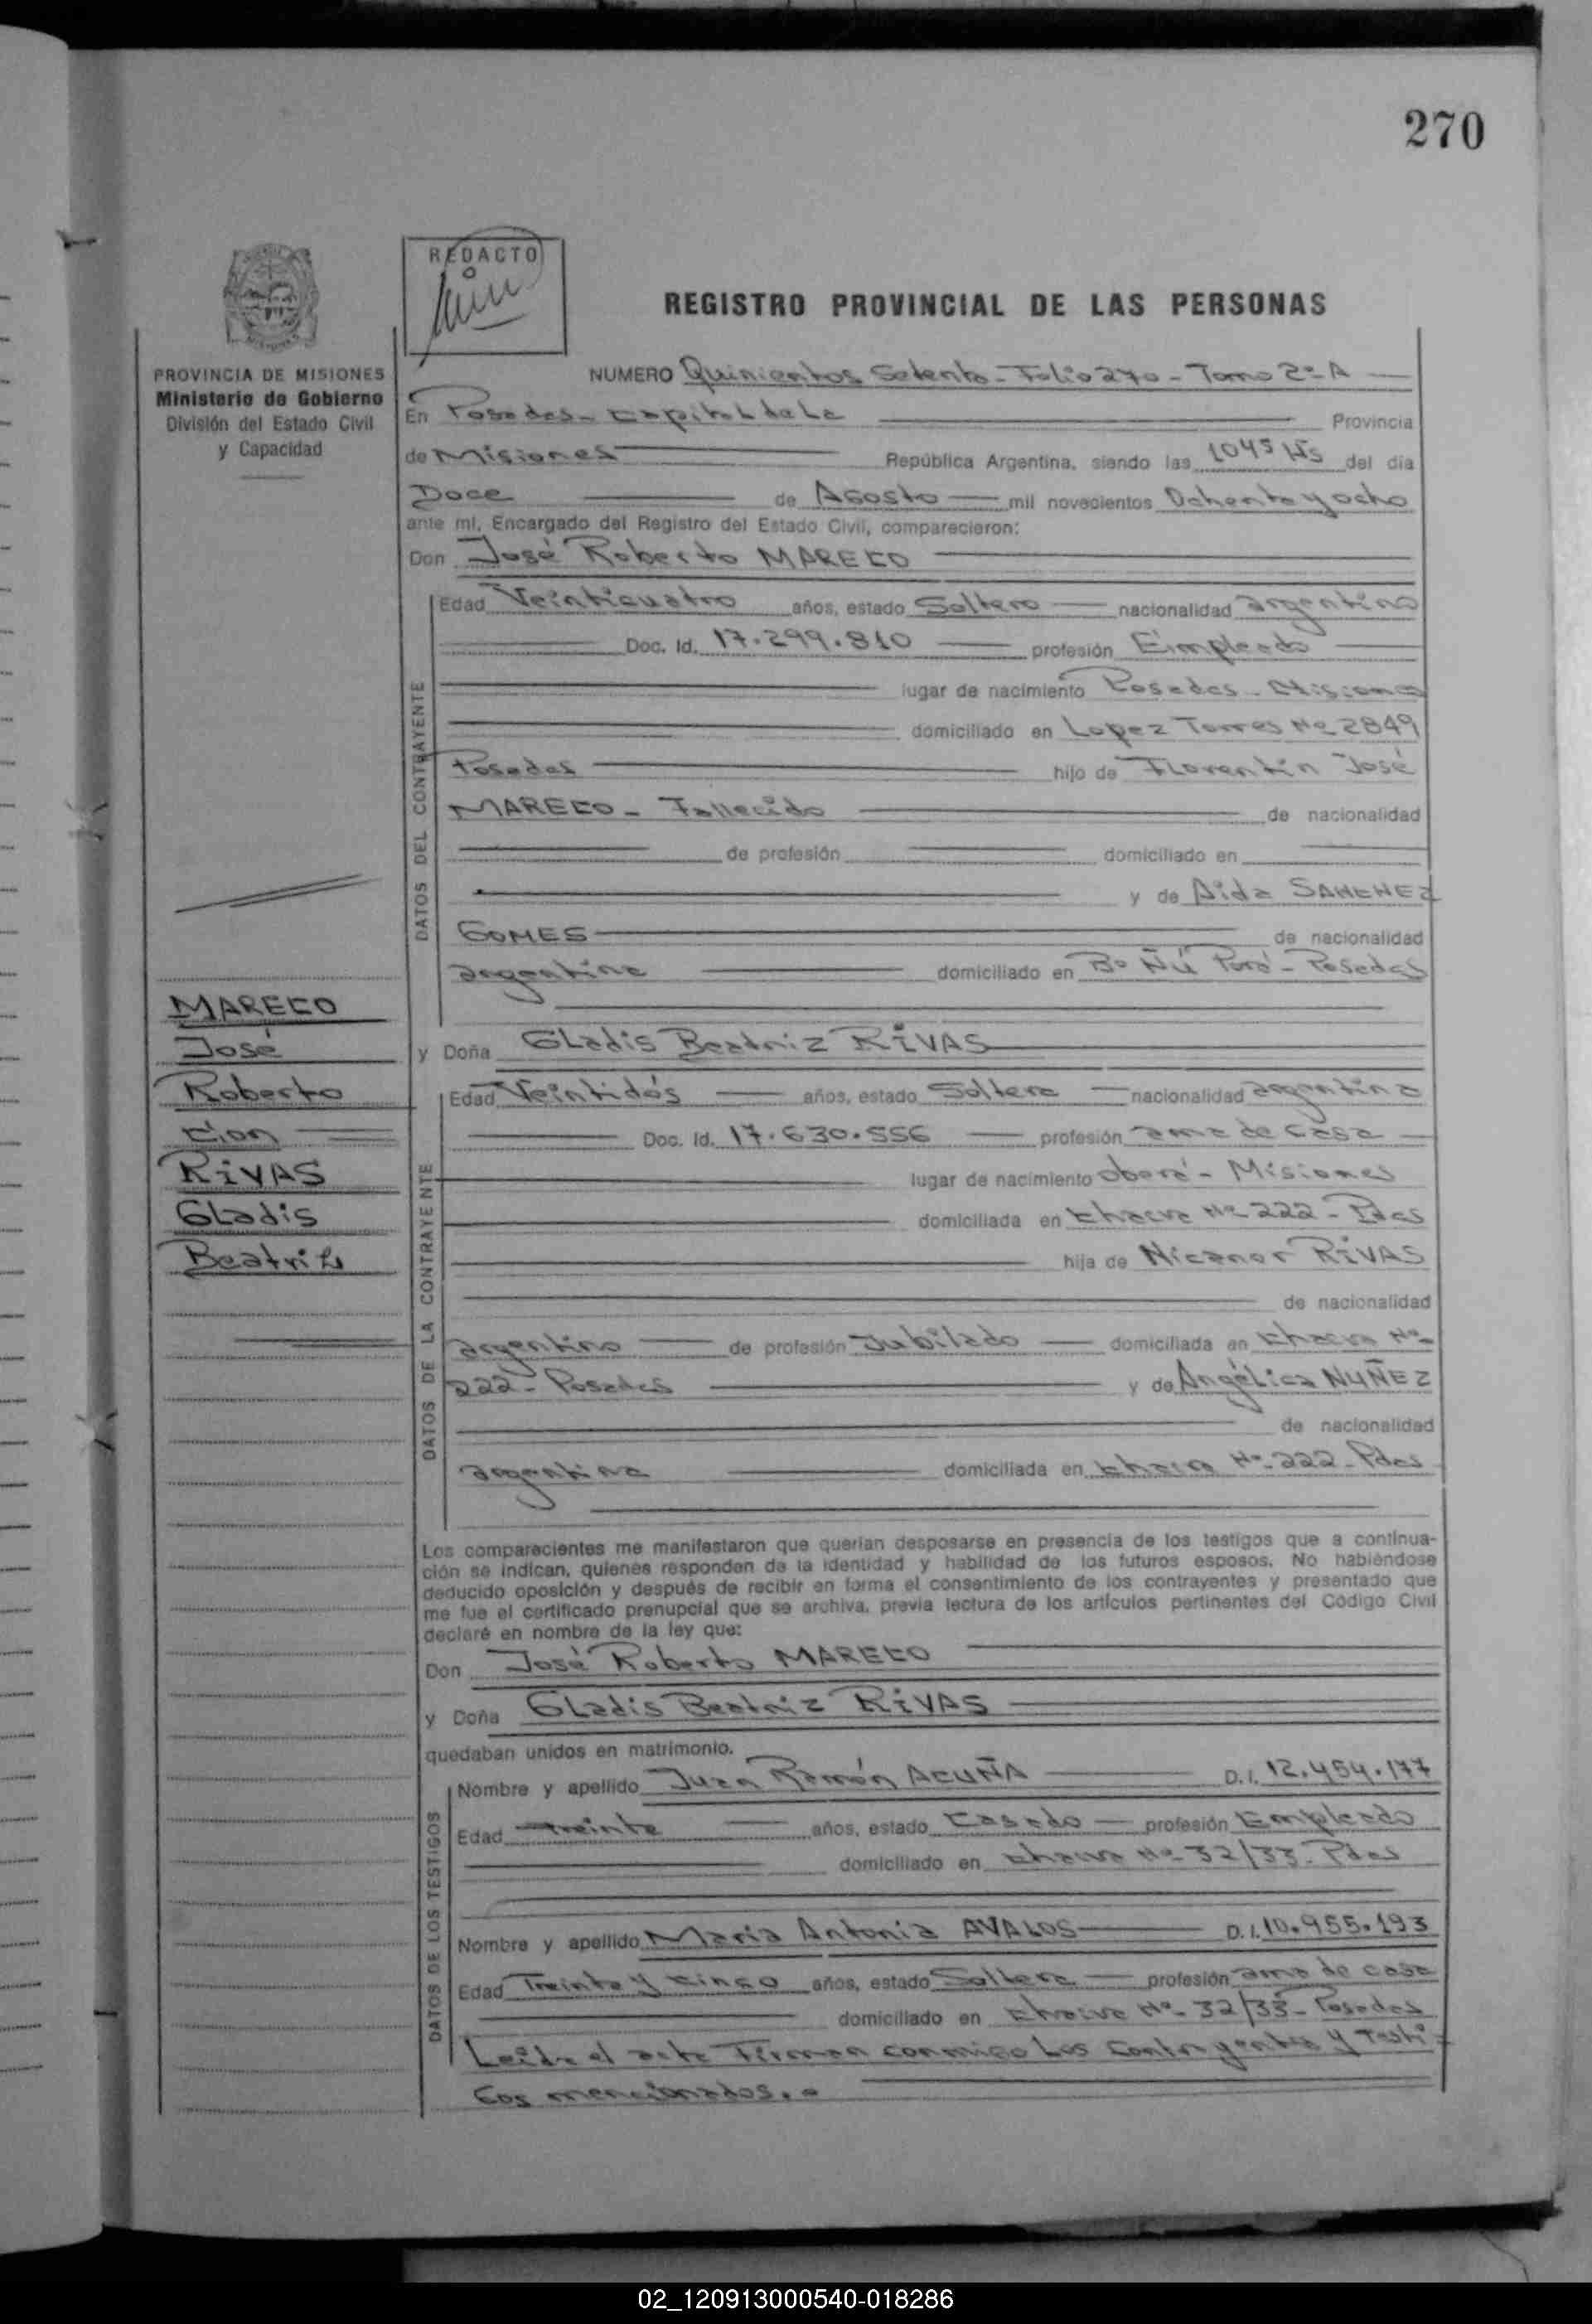 270
REDACTO
REGISTRO PROVINCIAL DE LAS PERSONAS
PROVINCIA DE MISIONES
Ministerio de Gobierno
División del Estado Civil
y Capacidad
NUMERO Quinientos Setenta - Folio 270 - Tomo 2º A
En Posadas - Capital de La Provincia
de Misiones República Argentina, siendo las 1045 Hs del día
Doce de Agosto mil novecientos Ochenta y ocho
ante mí, Encargado del Registro del Estado Civil, comparecieron:
Don José Roberto MARECO
DATOS DEL CONTRAYENTE
Edad Veinticuatro años, estado Soltero nacionalidad argentino
Doc. Id. 17.299.810 profesión Empleado
lugar de nacimiento Posadas - Misiones
domiciliado en Lopez Torres Nº 2849
Posadas hijo de Florentín José
MARECO - Fallecido de nacionalidad
de profesión domiciliado en
y de Aida SANCHEZ
GOMES de nacionalidad
argentina domiciliado en Bº Ñú Porá - Posadas
MARECO
José
Roberto
con
RIVAS
Gladis
Beatriz
y Doña Gladis Beatriz RIVAS
DATOS DE LA CONTRAYENTE
Edad Veintidós años, estado Soltera nacionalidad argentina
Doc. Id. 17.630.556 profesión ama de casa
lugar de nacimiento Oberá - Misiones
domiciliada en Chacra Nº 222 - Pdas
hija de Nicanor RIVAS
de nacionalidad
argentino de profesión Jubilado domiciliada en Chacra Nº
222 - Posadas y de Angélica NUÑEZ
de nacionalidad
argentina domiciliada en Chacra Nº 222 - Pdas
Los comparecientes me manifestaron que querían desposarse en presencia de los testigos que a continua-
ción se indican, quienes responden de la identidad y habilidad de los futuros esposos. No habiéndose
deducido oposición y después de recibir en forma el consentimiento de los contrayentes y presentado que
me fue el certificado prenupcial que se archiva, previa lectura de los artículos pertinentes del Código Civil
declaré en nombre de la ley que:
Don José Roberto MARECO
y Doña Gladis Beatriz RIVAS
quedaban unidos en matrimonio.
DATOS DE LOS TESTIGOS
Nombre y apellido Juan Ramón ACUÑA D.I. 12.454.177
Edad Treinta años, estado Casado profesión Empleado
domiciliado en Chacra Nº 32/33 - Pdas
Nombre y apellido Maria Antonia AVALOS D.I. 10.955.193
Edad Treinta y cinco años, estado Soltera profesión ama de casa
domiciliado en Chacra Nº 32/33 - Posadas
Leida el acta Firman conmigo Los Contrayentes y Testi-
gos mencionados.
02_120913000540-018286